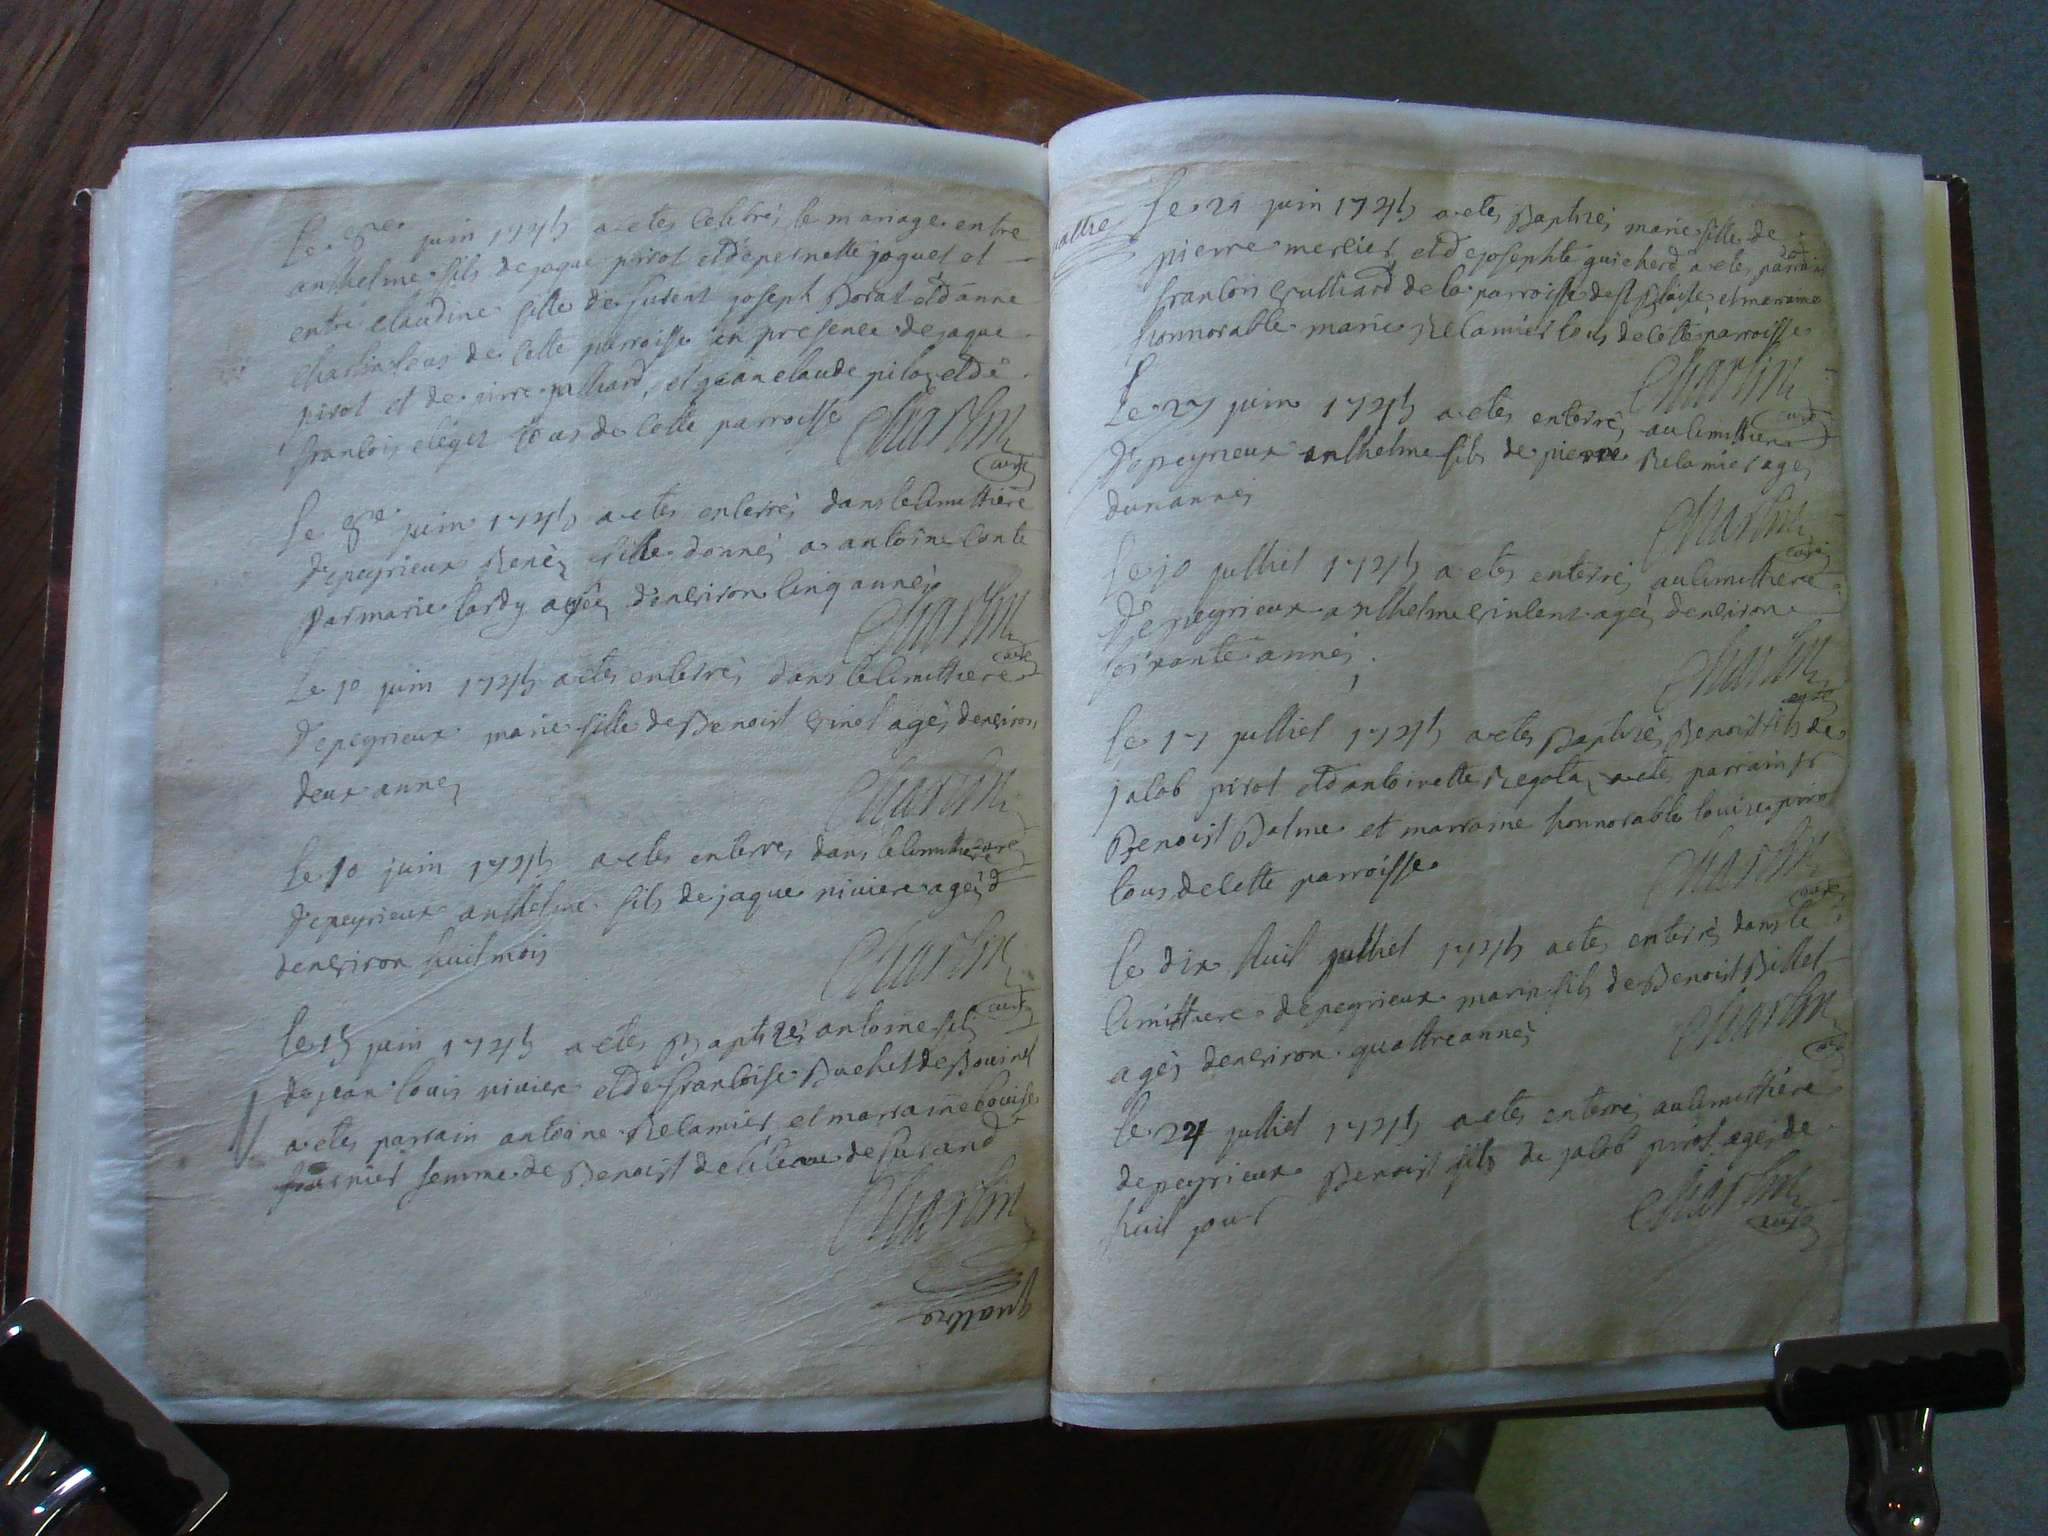 Le 8me juin 1725 a etes celebrés le mariage entre
anthelme fils de jaque pirot et de pernette joguet et
entre claudine fille de furent joseph Borat et d'anne
charlin tous de cette parroisse en presence de jaque
pirot et de pirre julliard, et jean claude piloz et de
francois eléger tous de cette parroisse Charlin
curé
Le 8me juin 1725 a etes enterrés dans le cimittiere
d'epeyrieux Renèz fille donnéz a antoine conte
par marie tardy agéez d'environ cinq annéz
Charlin
curé
Le 10 juin 1725 a etes enterrés dans le cimittiere
d'epeyrieux marie fille de Benoist Vinet agés d'environ
deux annez
Charlin
curé
Le 10 juin 1725 a etes enterres dans le cimittiere
d'epeyrieux anthelme fils de jaque riviere agés d
d'environ huit mois
Charlin
curé
Le 15 juin 1725 a etes Baptizés antoine fils
de jean louis rivier et de francoise Buchet de Bouinet
a etes parrain antoine Relamier et marraine louise
femme de Benoist de
Charlin
quattre
quattre
Le 21 juin 1725 a etes Baptizés marie fille de
pierre mercier et de josephte guicherd a etes parrain
francois Vulliard de la parroisse de st Blaise et marraine
honnorable marie Relamier tous de cette parroisse
Charlin
curé
Le 27 juin 1725 a etes enterrés au cimittiere
d'epeyrieux anthelme fils de pierre Relamier agés
d'un annéz
Charlin
curé
Le 10 julliet 1725 a etes enterrés au cimittiere
d'epeyrieux anthelme Vincent agés d'environ
soixante annéz
Charlin
curé
Le 17 julliet 1725 a etes Baptizés Benoist fils de
jacob pirot et d'antoinette Regota a etes parrain sr
Benoist Balme et marraine honnorable louise pirot
tous de cette parroisse
Charlin
curé
Le dix huit julliet 1725 a etes enterrés dans le
cimittiere d'epeyrieux marin fils de Benoist Billet
agés d'environ quattre annéz
Charlin
curé
Le 24 julliet 1725 a etes enterrés au cimittiere
d'epeyrieux Benoist fils de jacob pirot agés de
huit jours
Charlin
curé